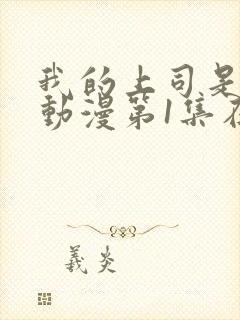 我的上司是
動漫第1集在
羲炎